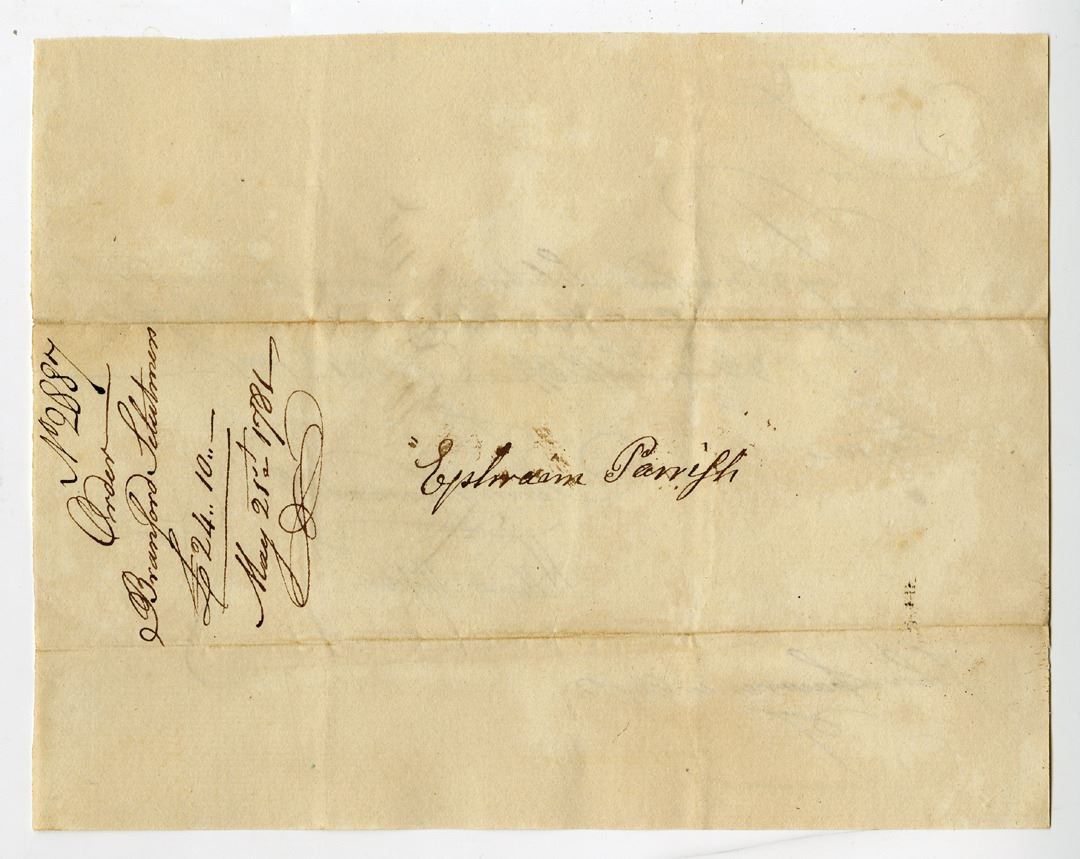 No 2887
Order
Branford Selectmen
£24.. 10..
May 21st 1781
Ephraim Parrish